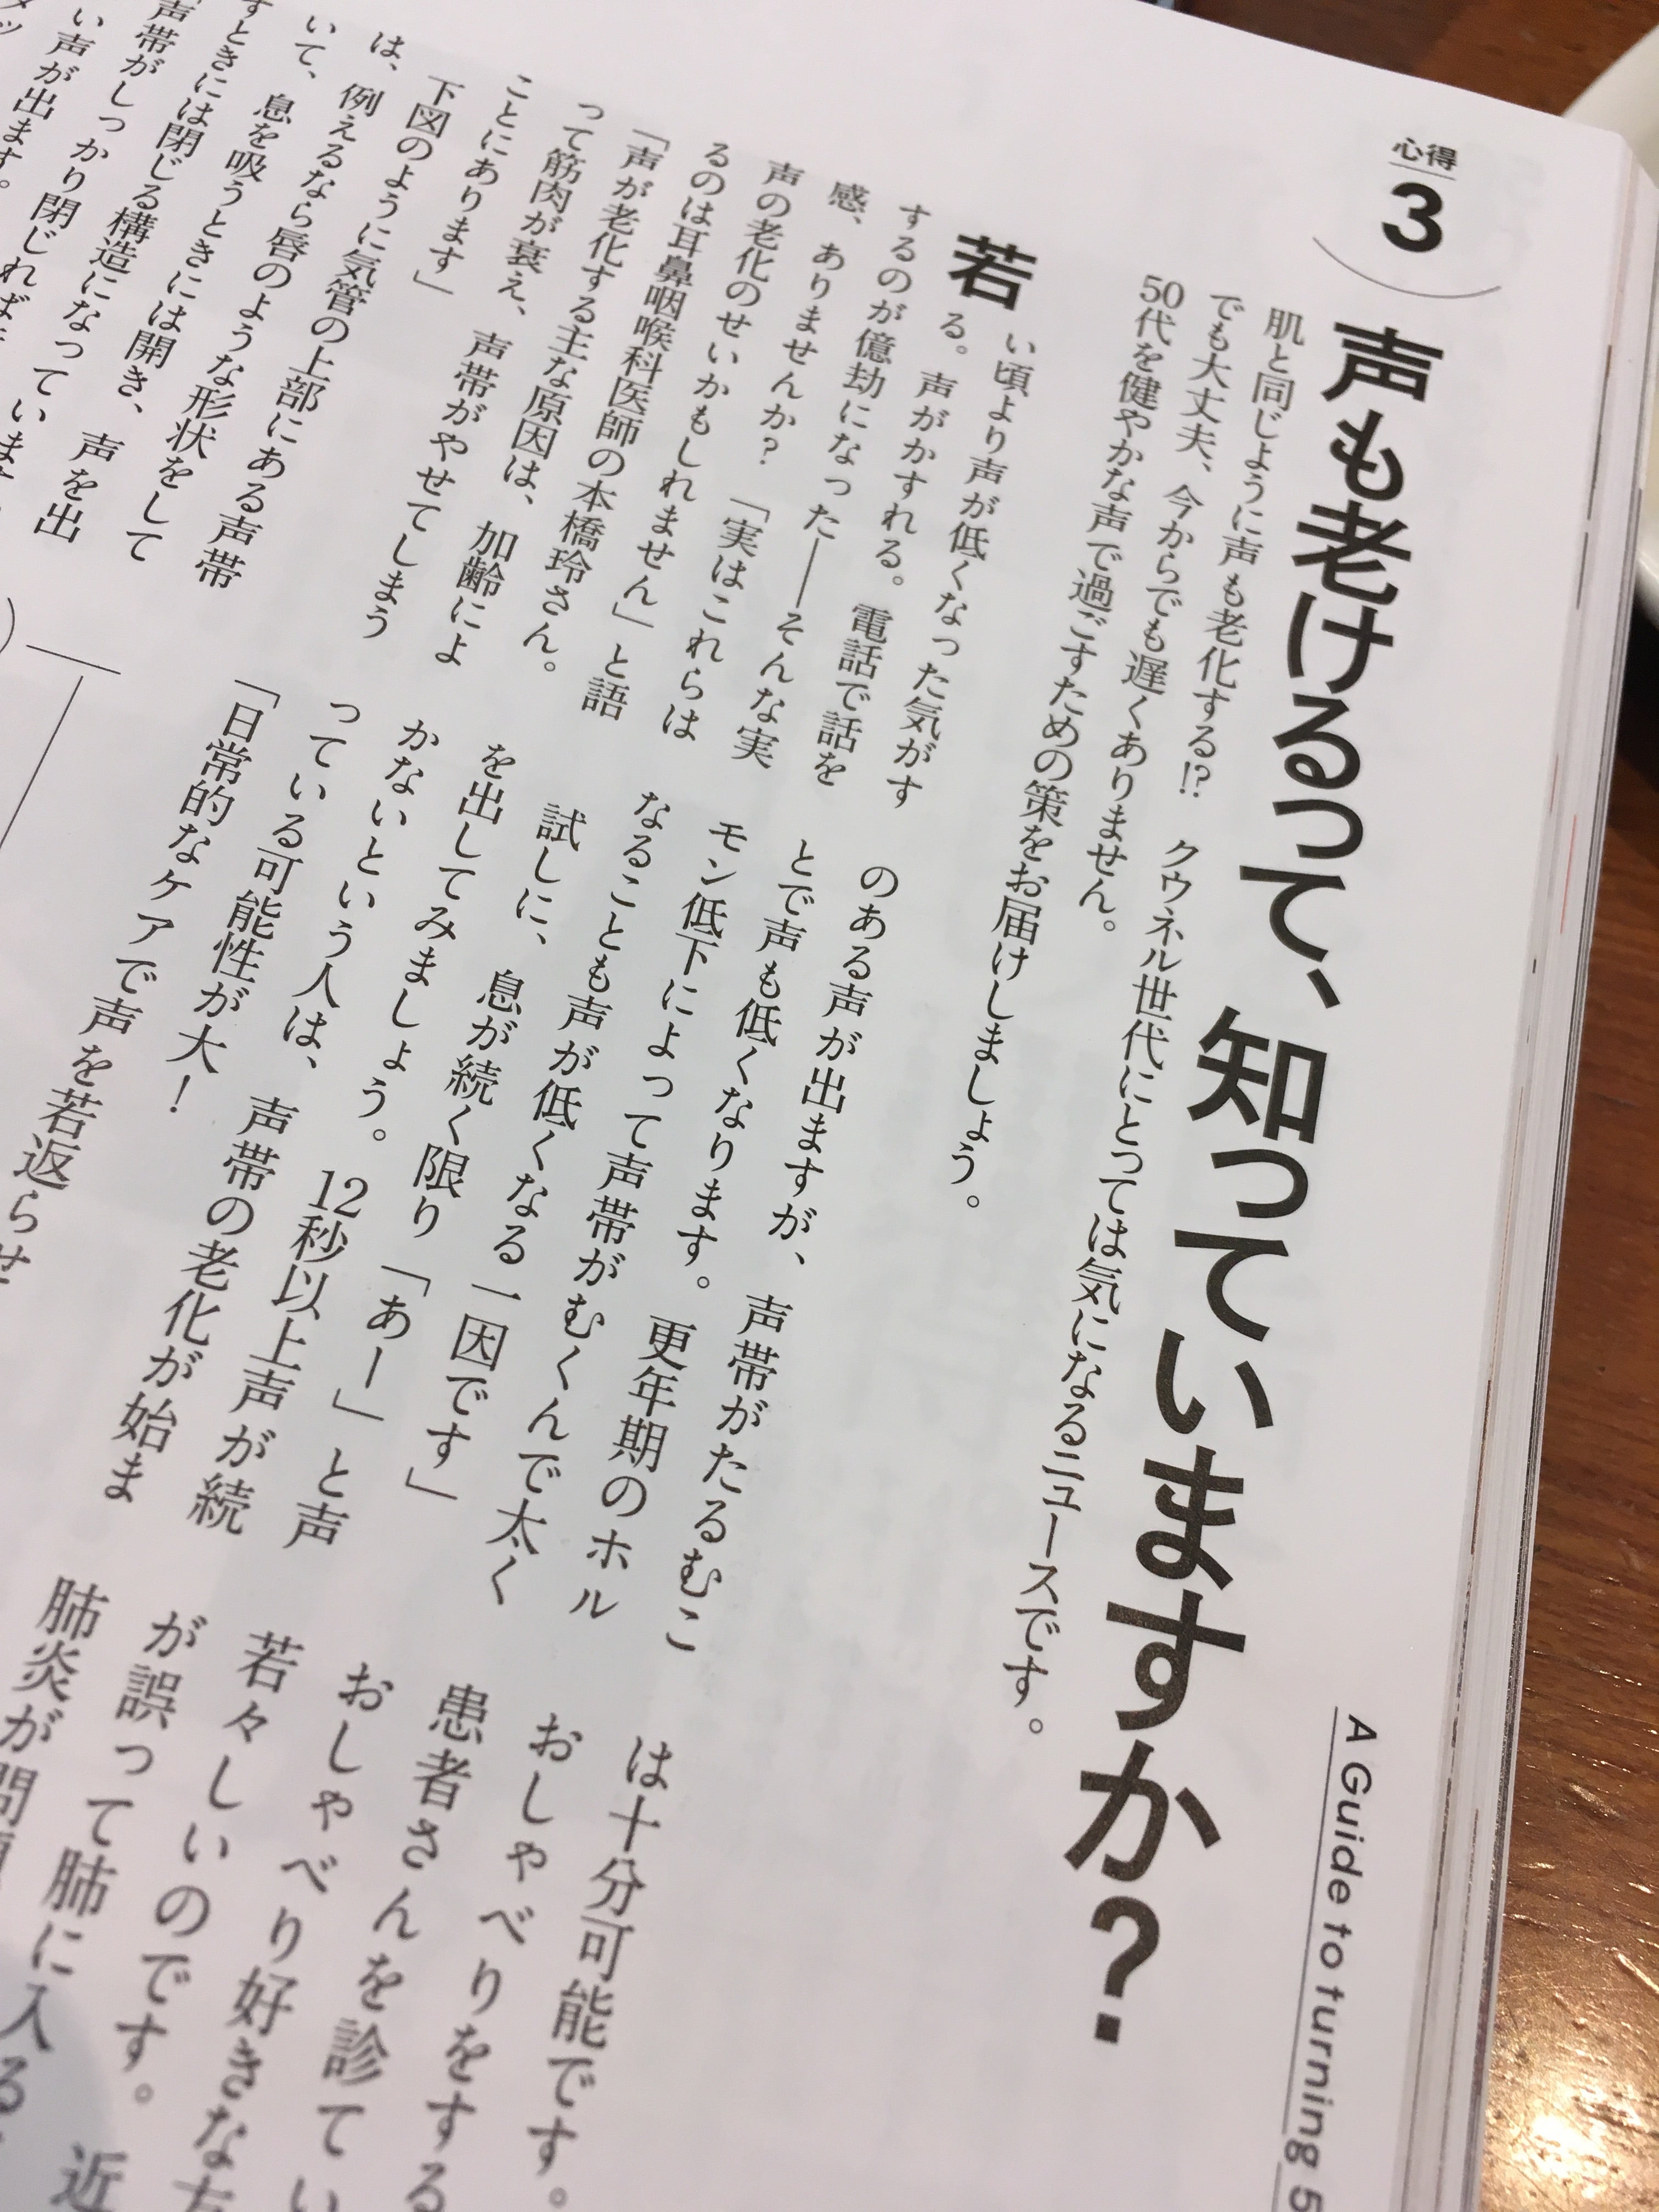 心得
3
声も老けるって、知っていますか?
A Guide to turning 5
肌と同じように声も老化する!? クウネル世代にとっては気になるニュースです。
でも大丈夫、今からでも遅くありません。
50代を健やかな声で過ごすための策をお届けしましょう。
若い頃より声が低くなった気がす
る。声がかすれる。電話で話を
するのが億劫になった——そんな実
感、ありませんか?「実はこれらは
声の老化のせいかもしれません」と語
るのは耳鼻咽喉科医師の本橋玲さん。
「声が老化する主な原因は、加齢によ
って筋肉が衰え、声帯がやせてしまう
ことにあります」
下図のように気管の上部にある声帯
は、例えるなら唇のような形状をして
いて、息を吸うときには開き、声を出
すときには閉じる構造になっていま
声帯がしっかり閉じれば
い声が出ます。
のある声が出ますが、声帯がたるむこ
とで声も低くなります。更年期のホル
モン低下によって声帯がむくんで太く
なることも声が低くなる一因です」
試しに、息が続く限り「あー」と声
を出してみましょう。12秒以上声が続
かないという人は、声帯の老化が始ま
っている可能性が大!
「日常的なケアで声を若返らせ
は十分可能です。
おしゃべりをする
患者さんを診てい
おしゃべり好きな方
若々しいのです。近
が誤って肺に入る
肺炎が問題